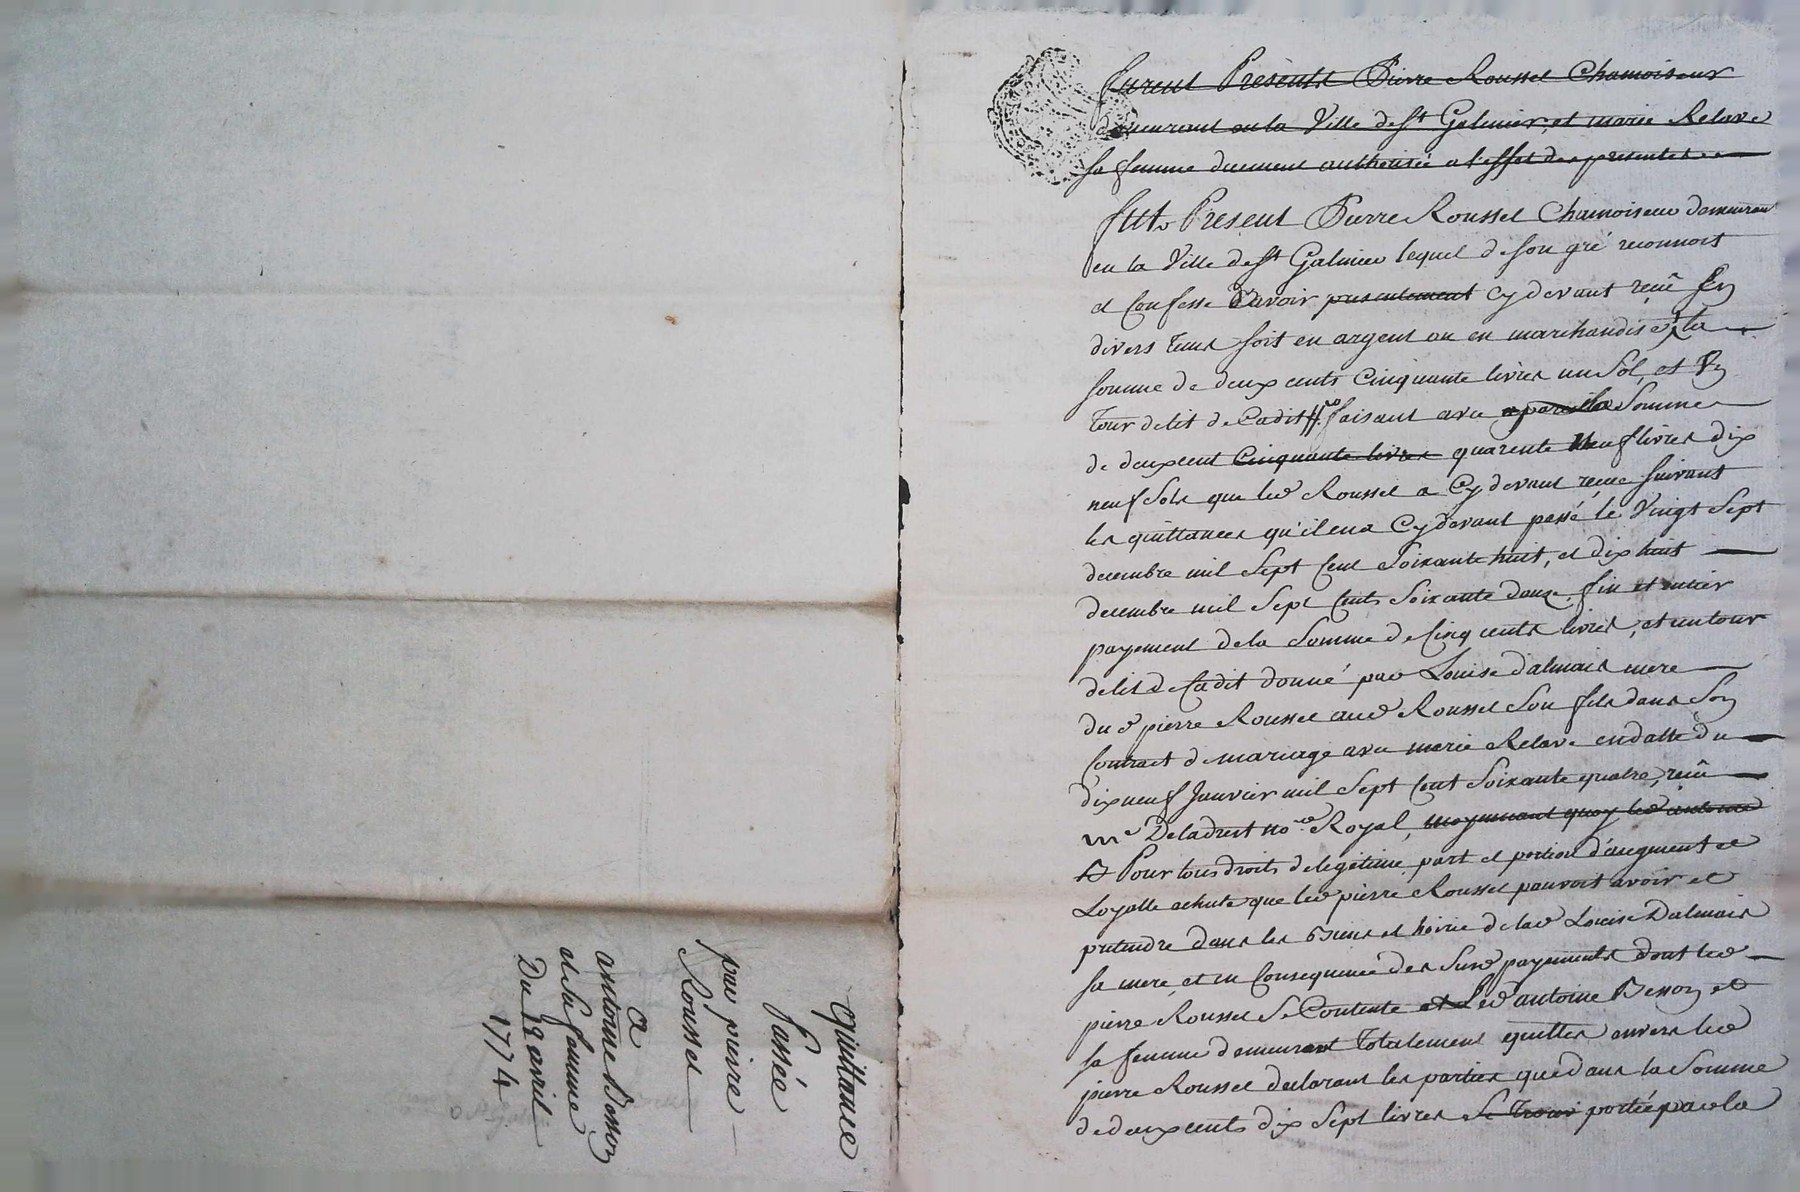 Quittance
passée
par pierre
Roussel
A
antoine Besson
et sa femme
Du 12 avril
1774
furent Présents Pierre Roussel Chamoiseur
demeurant en la Ville de St Galmier, et marie Relave
sa femme duement authorisée a l'effet des presentes
fut Present Pierre Roussel Chamoiseur demeurant
en la Ville de St Galmier lequel de son gré reconnoit
et Confesse D'avoir presentement Cy devant reçû En
divers tems soit en argent ou en marchandise, la
somme de deux cents Cinquante livres un Sol, et Un
tour de lit de Cadit faisant avec la Somme
de deux cent Cinquante livres quarente Neuf livres dix
neuf Sols que led Roussel a Cy devant reçue suivant
les quittances qu'il en a Cy devant passé le Vingt Sept
decembre mil Sept Cent Soixante huit, et dix huit
decembre mil Sept Cents Soixante douze, fin et entier
payement de la Somme de Cinq cents livres, et un tour
de lit de Cadit donné par Louise Dalmais mere
dud pierre Roussel aud Roussel Son fils dans Son
Contract de mariage avec marie Relave en datte du
dix neuf Janvier mil Sept Cent Soixante quatre, reçû
me Deladret nore Royal, moyennant quoy led antoine
Pour tous droits de legitime, part et portion d'augment et
Loyalle echute que led pierre Roussel pouvoit avoir et
pretendre dans les Biens et hoirie de lad Louise Dalmais
sa mere, et en Consequence des Susd payements dont led
pierre Roussel Se Contente et Led antoine Besson et
sa femme demeurent totalement quittes envers led
pierre Roussel declarant les parties que dans la Somme
de deux cents dix Sept livres Se trouve portée par la